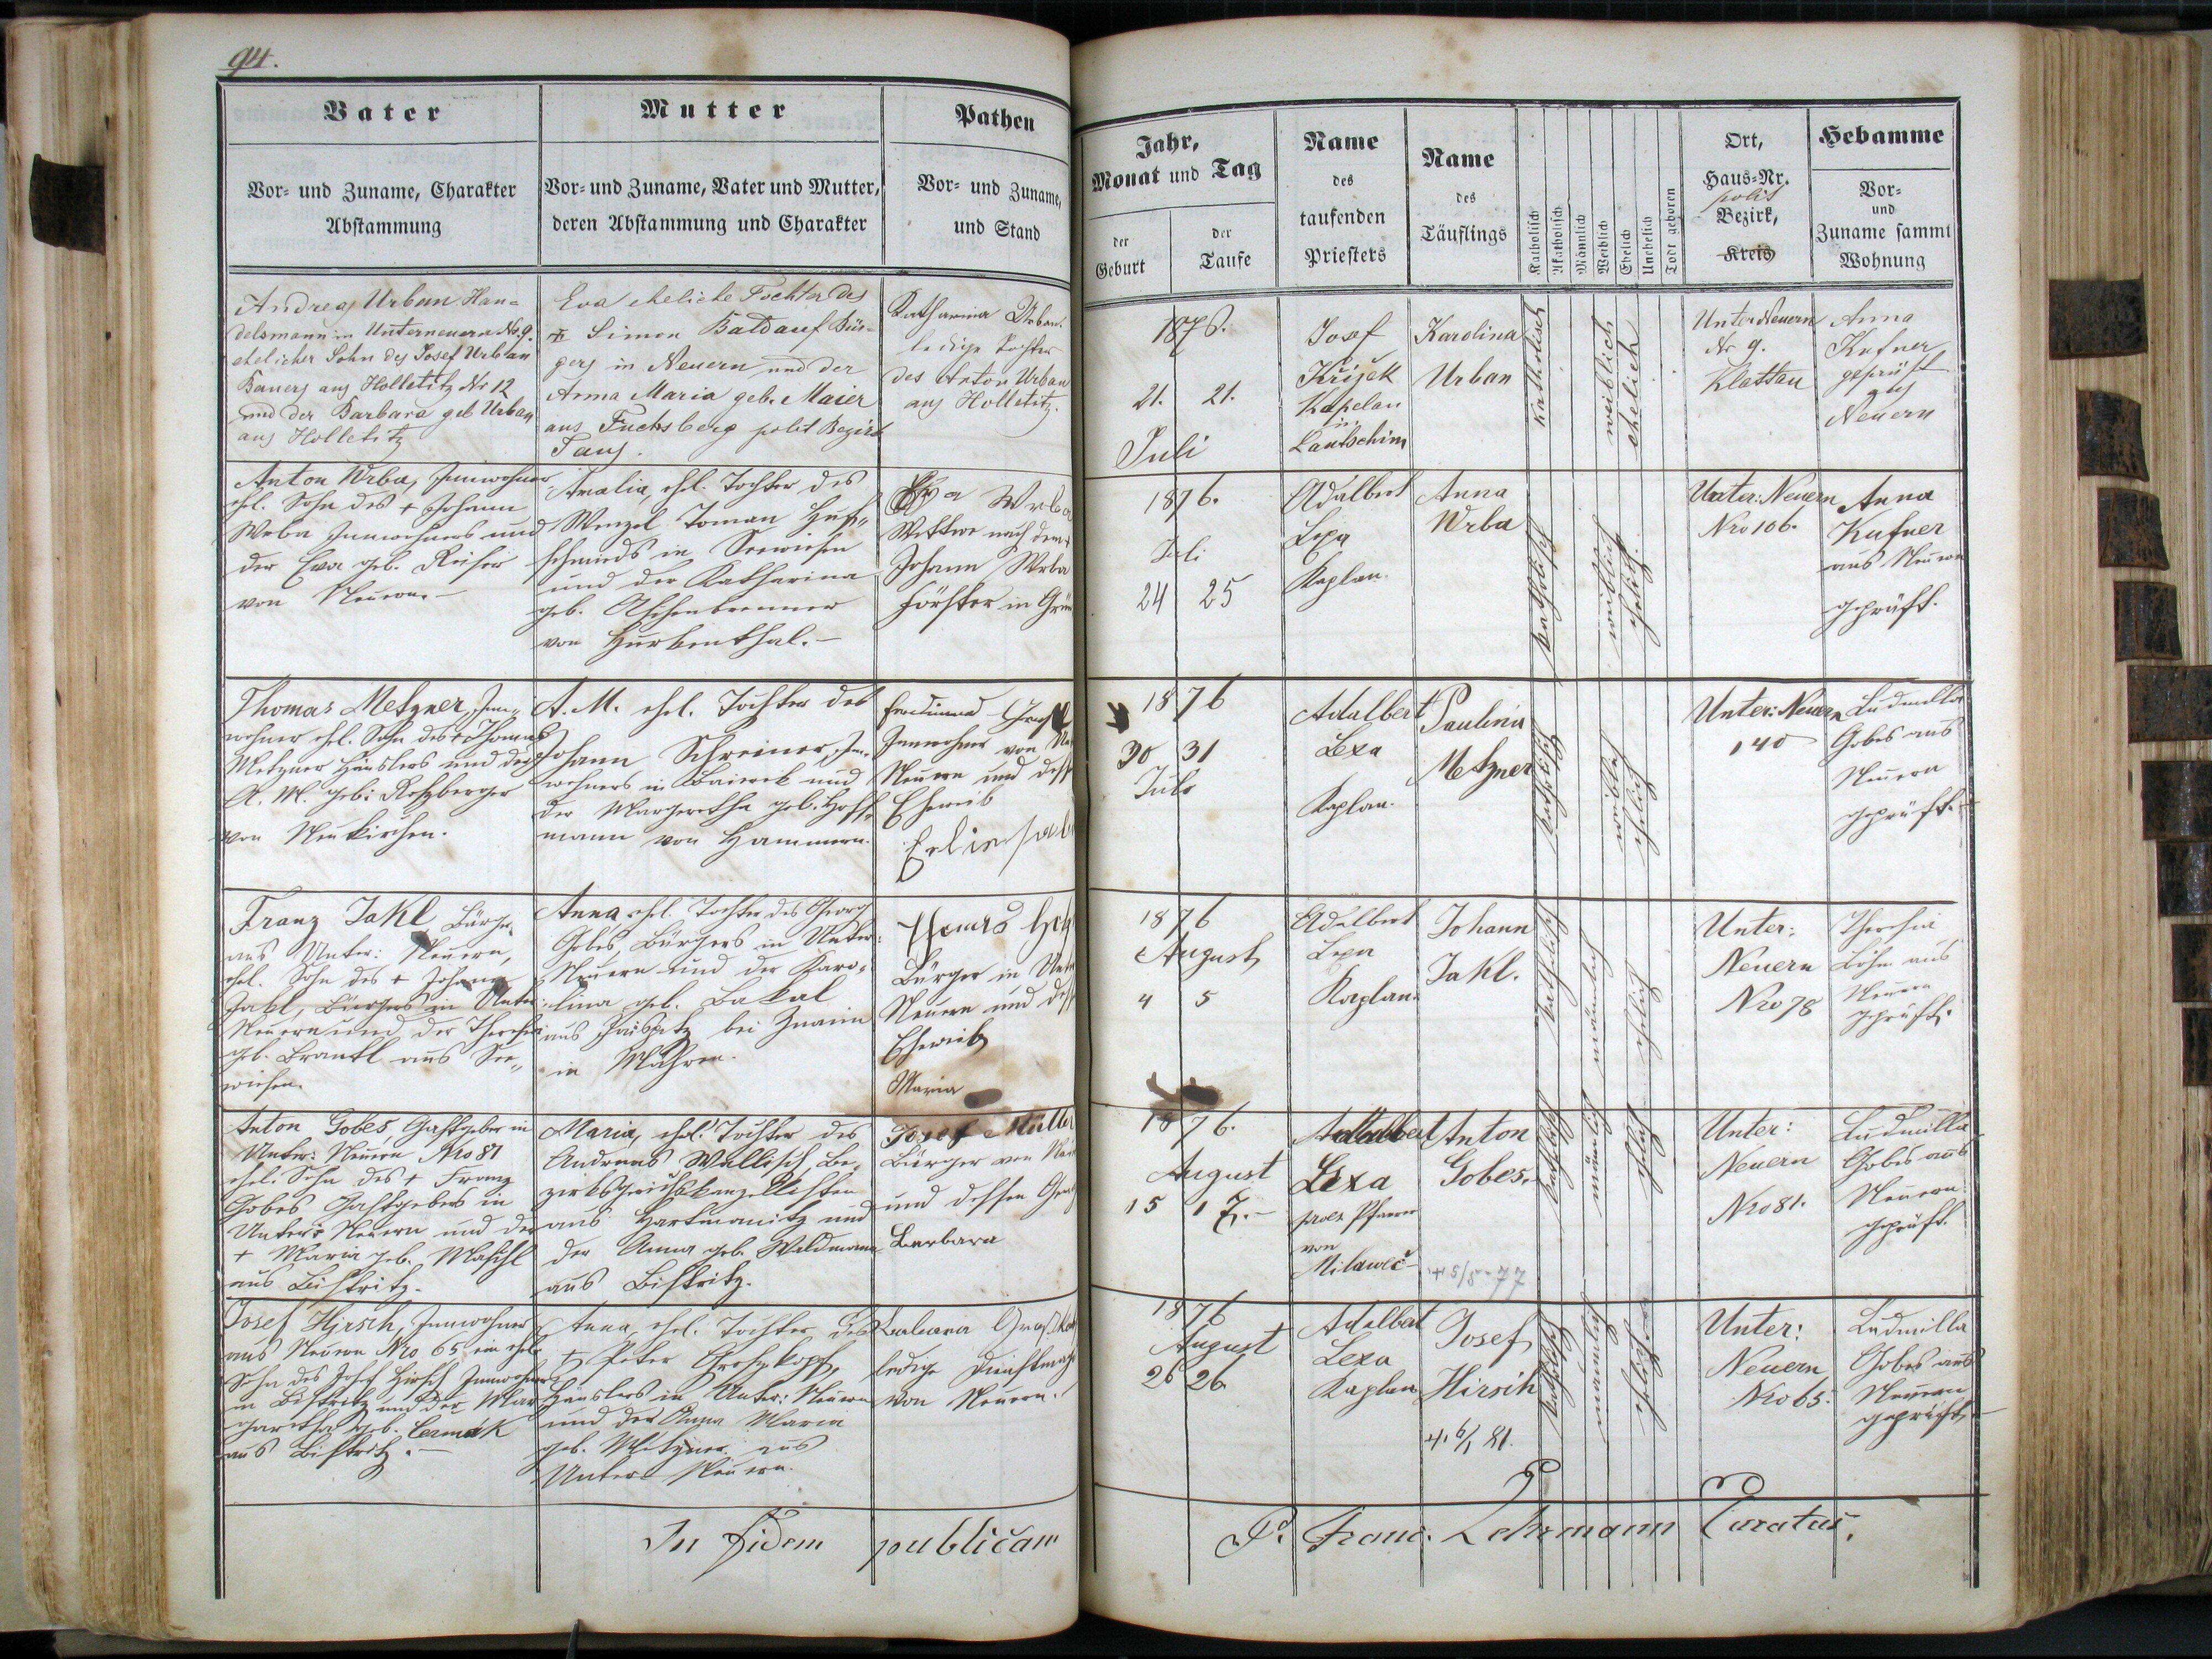 94.
Vater
Vor- und Zuname, Charakter
Abstammung
Mutter
Vor- und Zuname, Vater und Mutter,
deren Abstammung und Charakter
Pathen
Vor- und Zuname,
und Stand
Andreas Urban Han=
delsmann in Unterneuern No 9.
ehelicher Sohn des Josef Urban
Bauers aus Holletitz Nr 12
und der Barbara geb Urban
aus Holletitz
Eva eheliche Tochter des
Simon Baldauf Bür=
gers in Neuern und der
Anna Maria geb. Maier
aus Fuchsberg polit Bezirk
Taus.
Katharina Urban
ledige Tochter
des Anton Urban
aus Holletitz.
Anton Wrba, Innwohner
ehl. Sohn des + Johann
Wrba Innwohners und
der Eva geb. Reiser
von Neuern.
Amalia, ehl. Tochter des
Wenzel Toman Huf=
schmieds in Seewiesen
und der Katharina
geb. Aschenbrenner
von Hurkenthal.
Eva Wrba
Wittwe nach dem +
Johann Wrba
Förster in
Thomas Metzner, Inn=
wohner ehl. Sohn des + Thomas
Metzner Häuslers und der
A. M. geb: Roßberger
von Neukirchen.
A. M. ehl. Tochter des
Johann Schreiner, Inn=
wohners in Baiereck und
der Margeretha geb. Hoff=
mann von Hammern.
Ferdinand
Innwohner von
Neuern und
Eheweib
Franz Jakl Bürger
aus Unter: Neuern,
ehl. Sohn des + Johann
Jakl, Bürgers in Unter
Neuern und der Theresia
geb. Brantl aus See=
wiesen.
Anna ehl. Tochter des Georg
Gobes, Bürgers in Unter:
Neuern und der Karo=
lina geb. Bakal
aus bei Znaim
in Mähren.
Bürger in
Neuern und
Eheweib
Maria
Anton Gobes, Gastgeber in
Unter: Neuern Nro 81
ehl. Sohn des + Franz
Gobes Gastgebers in
Unter: Neuern und der
+ Maria geb. Maschl
aus Bistritz.
Maria, ehl. Tochter des
Andreas Wallisch, Be=
zirksgerichtskanzellisten
aus Hartmanitz und
der Anna geb. Waldmann
aus Bistritz.
Josef Müller
Bürger von
und dessen
Barbara
Josef Hirsch, Innwohner
aus Neuern Nro 65 ein ehel.
Sohn des Josef Hirsch Innwohners
in Bistritz und der Mar
garetha geb. Čermák
aus Bistritz.
Anna, ehl. Tochter des
+ Peter Großkopf,
Häuslers in Unter: Neuern
und der Anna Maria
geb. Metzner aus
Unter Neuern.
Barbara
ledige Dienstmagd
von Neuern.
In fidem publicam
Jahr,
Monat und Tag
der
Geburt
der
Taufe
Name
des
taufenden
Priesters
Name
des
Täuflings
Katholisch
Akatholisch
Männlich
Weiblich
Ehelich
Unehelich
Todt geboren
Ort,
Haus-Nr.
polit
Bezirk,
Kreis
Hebamme
Vor-
und
Zuname sammt
Wohnung
1876.
21. 21.
Juli
Josef
Křížek
Kaplan
in
Lautschim
Karolina
Urban
katholisch
weiblich
ehelich
Unter Neuern
Nr 9.
Klattau
Anna
Kufner
geprüft
aus
Neuern
1876.
Juli
24 25
Adalbert
Lexa
Kaplan.
Anna
Wrba
katholisch
weiblich
ehelich.
Unter: Neuern
Nro 106.
Anna
Kufner
aus Neuern
geprüft.
1876
30 31
Juli
Adalbert
Lexa
Kaplan.
Paulina
Metzner
katholisch
weiblich
ehelich
Unter: Neuern
140
Ludmilla
Gobes aus
Neuern
geprüft.
1876
August
4 5
Adalbert
Lexa
Kaplan.
Johann
Jakl.
katholisch
männlich
ehelich
Unter:
Neuern
Nro 78
Theresia
Böhm aus
Neuern
geprüft.
1876.
August
15 17.
Adalbert
Lexa
Pfarrer
von
Milaweč
Anton
Gobes.
+ 5/5 - 77
katholisch
männlich
ehelich
Unter:
Neuern
Nro 81.
Ludmilla
Gobes aus
Neuern
geprüft.
1876
August
26 26.
Adalbert
Lexa
Kaplan
Josef
Hirsch
+ 6/1 81.
katholisch
männlich
ehelich
Unter:
Neuern
Nro 65.
Ludmilla
Gobes aus
Neuern
geprüft.
P. Franc. Lehrmann Curatus.